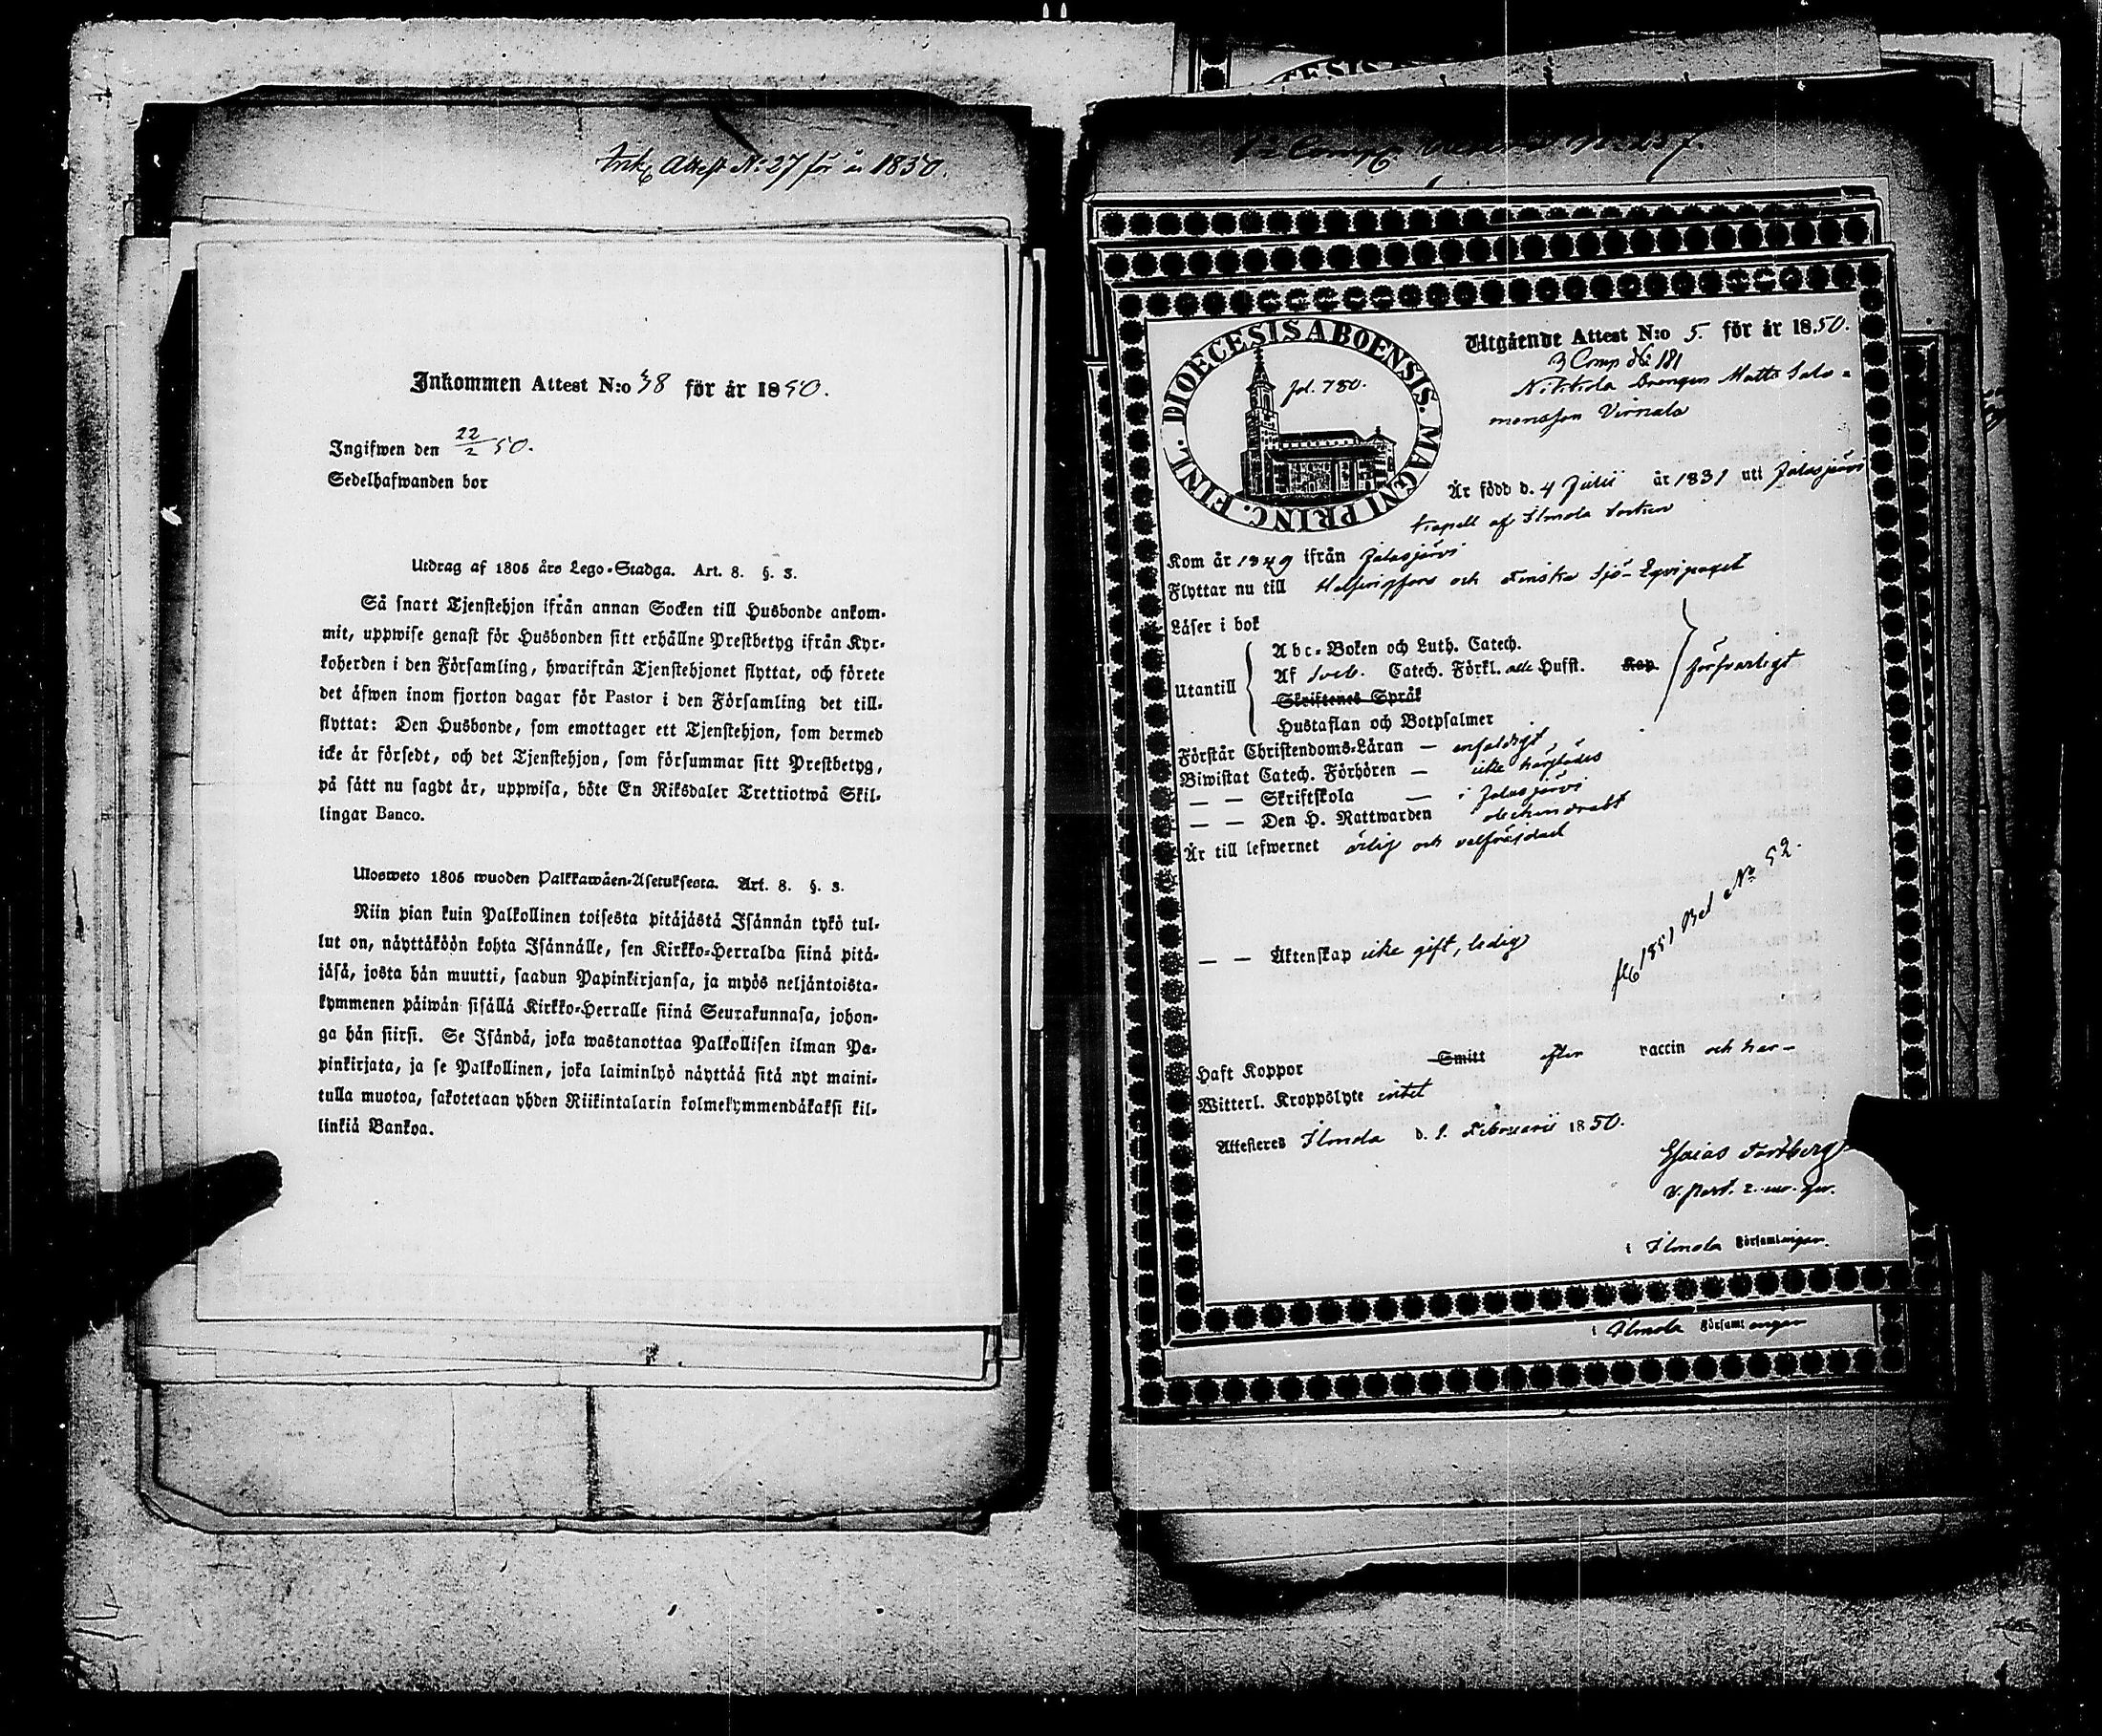 Ink Attest N:27 för år 1850.
Inkommen Attest N:o 38 för år 1850.
Ingifwen den 22/2 50.
Sedelhafwanden bor
Utdrag af 1805 års Lego-Stadga. Art. 8. §. 3.
Så snart Tjenstehjon ifrån annan Socken till Husbonde ankom-
mit, uppwise genast för Husbonden sitt erhållne Prestbetyg ifrån Kyr-
koherden i den Församling, hwarifrån Tjenstehjonet flyttat, och förete
det äfwen inom fjorton dagar för Pastor i den Församling det till-
flyttat: Den Husbonde, som emottager ett Tjenstehjon, som dermed
icke är försedt, och det Tjenstehjon, som försummar sitt Prestbetyg,
på sätt nu sagdt är, uppwisa, böte En Riksdaler Trettiotwå Skil-
lingar Banco.
Ulosweto 1805 wuoden Palkkawäen-Asetuksesta. Art. 8. §. 3.
Niin pian kuin Palkollinen toisesta pitäjästä Isännän tykö tul-
lut on, näyttäköön kohta Isännälle, sen Kirkko-Herralda siinä pitä-
jäsä, josta hän muutti, saadun Papinkirjansa, ja myös neljäntoista-
kymmenen päiwän sisällä Kirkko-Herralle siinä Seurakunnasa, johon-
ga hän siirsi. Se Isändä, joka wastanottaa Palkollisen ilman Pa-
pinkirjata, ja se Palkollinen, joka laiminlyö näyttää sitä nyt maini-
tulla muotoa, sakotetaan yhden Riikintalarin kolmekymmendäkaksi kil-
linkiä Bankoa.
DIOECESIS ABOENSIS. MAGNI PRINC. FINL.
fol. 780.
Utgående Attest N:o 5. för år 1850.
3 Comp No 181
Drengen Matts Salo-
monsson Virnala
Är född d. 4 Julii år 1831 uti Jalasjärvi
kapell af Ilmola Socken
Kom år 1849 ifrån Jalasjärvi
Flyttar nu till Helsingfors och Finska Sjö-Eqvipaget
Läser i bok
Utantill
Abc-Boken och Luth. Catech.
Af Sveb. Catech. Förkl. alla Hufst. Kap.
Skriftenes Språk
Hustaflan och Botpsalmer
försvarligt
Förstår Christendoms-Läran — enfaldigt
Biwistat Catech. Förhören — icke härstädes
— — Skriftskola — i Jalasjärvi
— — Den H. Nattwarden obehindradt
Är till lefwernet ärlig och välfräjdad
— — Äktenskap icke gift, ledig
1851 Bet No 52.
Haft Koppor Smitt efter vaccin och har—
Witterl. Kroppslyte intet
Attesteres Ilmola d. 9. Februarii 1850.
Esaias
i Ilmola Församlingen.
i Ilmola Församlingen